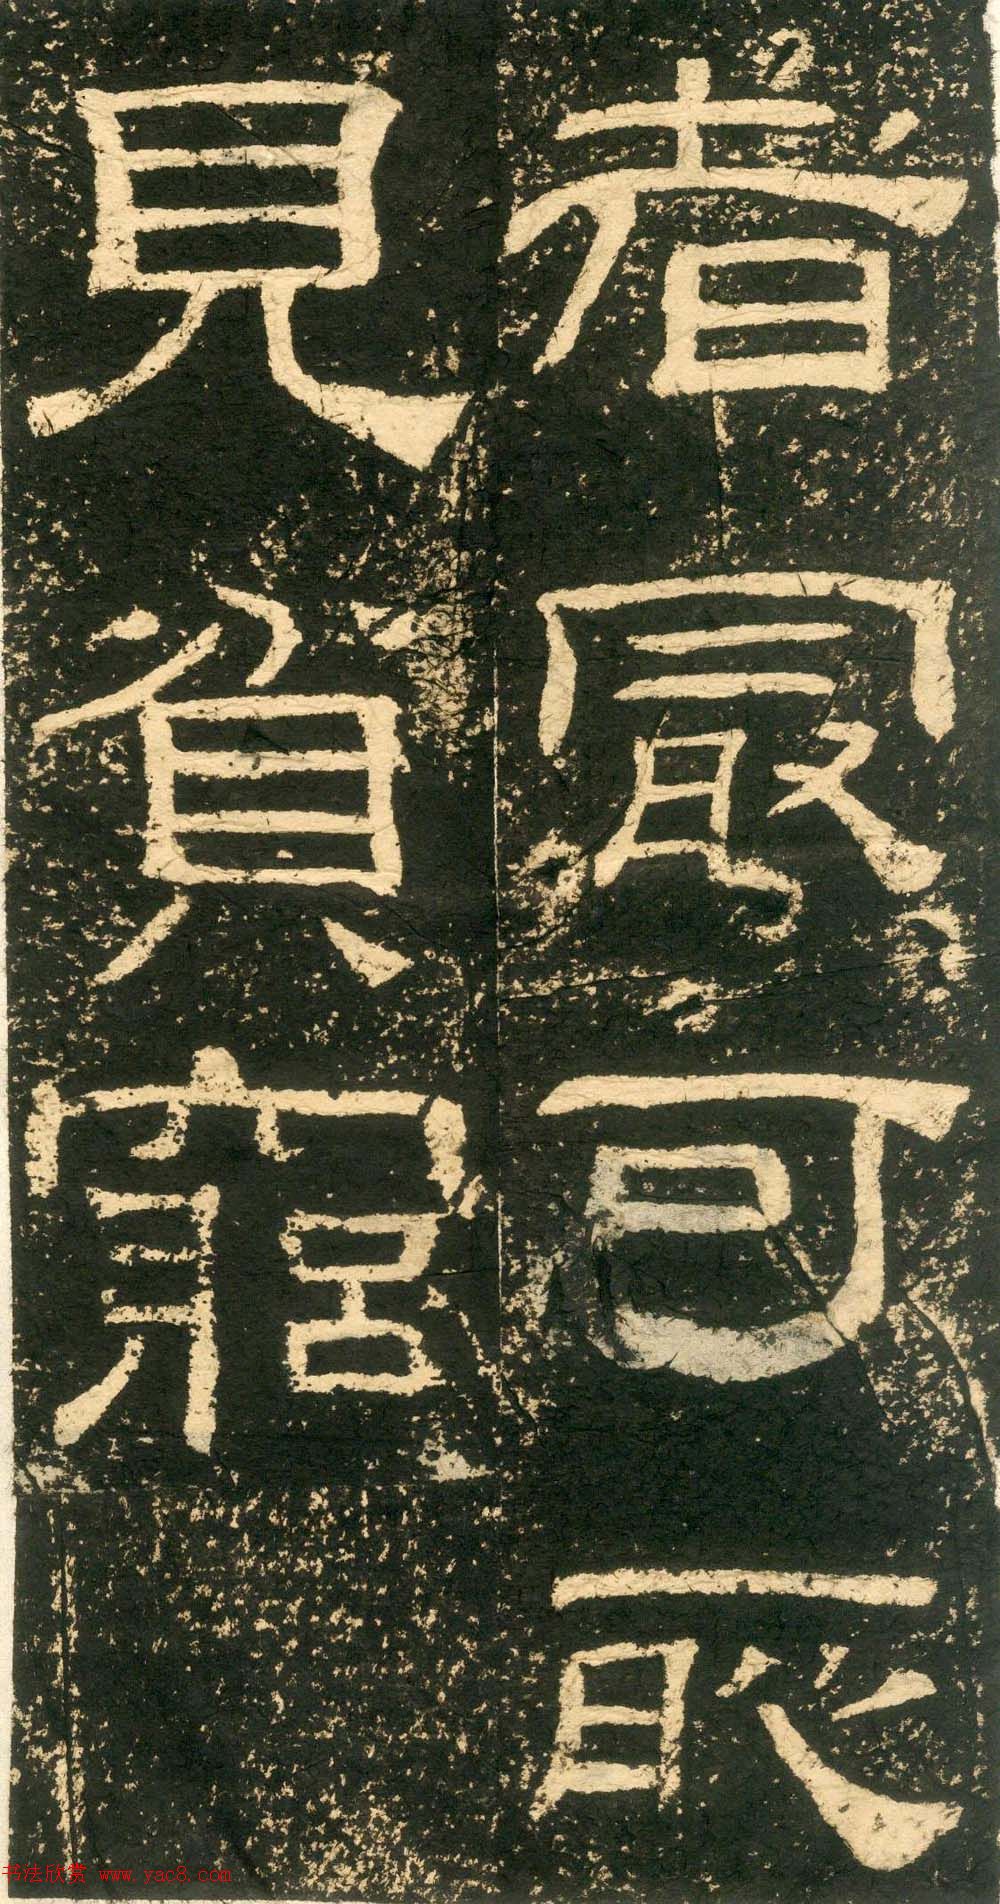 者冣可
見貧窮
书法欣赏 www.yac8.com